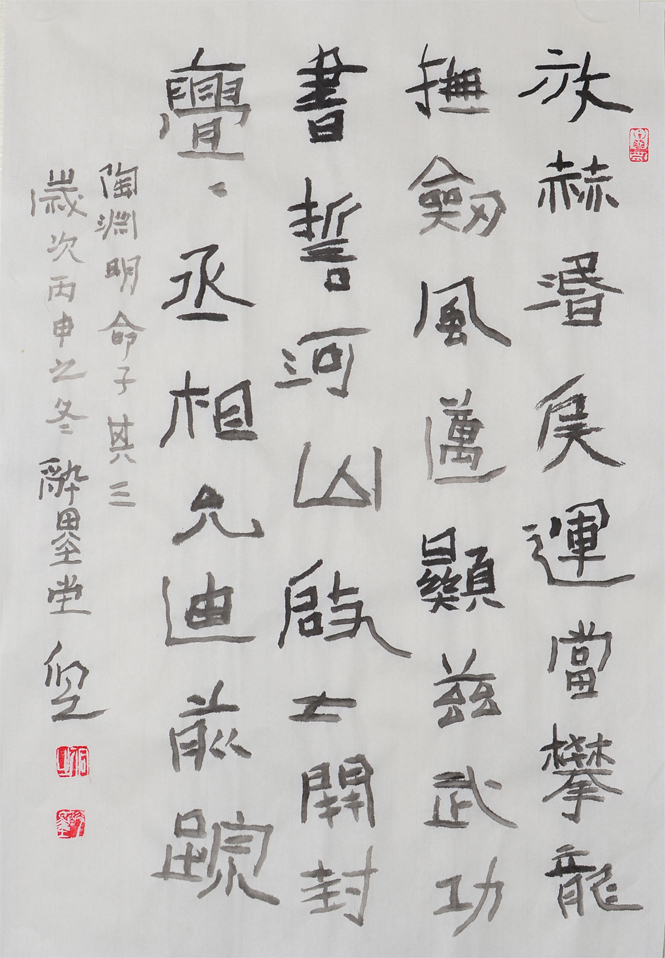 於赫湣侯運當攀龍
撫劒風邁顯茲武功
書誓河山啟土開封
亹〻丞相允迪前踪
陶淵明命子其三
歲次丙申之冬醉墨堂